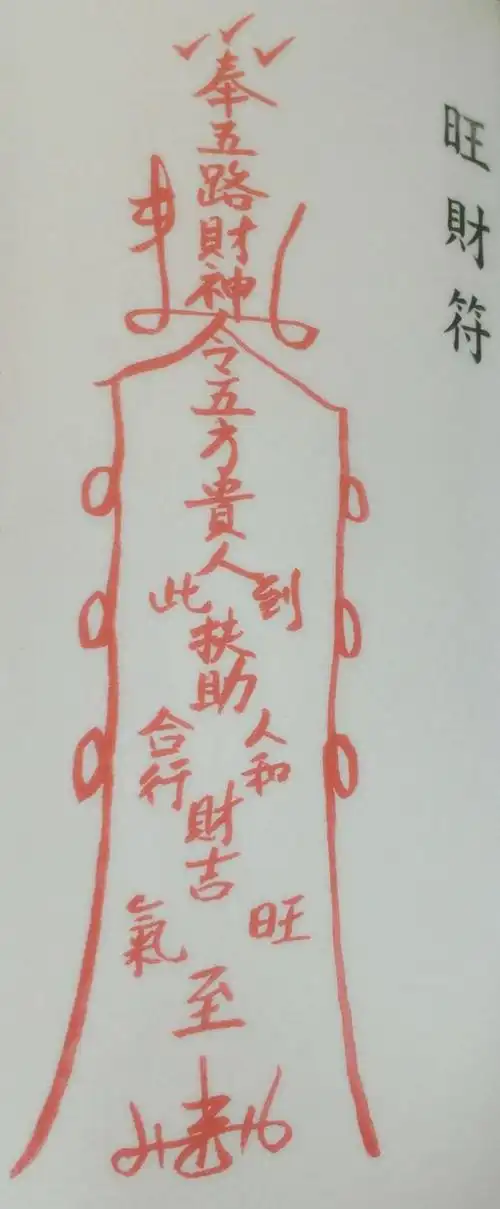 旺財符
奉五路財神
令五方貴人
到此
扶助
人和
合行
財吉
旺氣
至